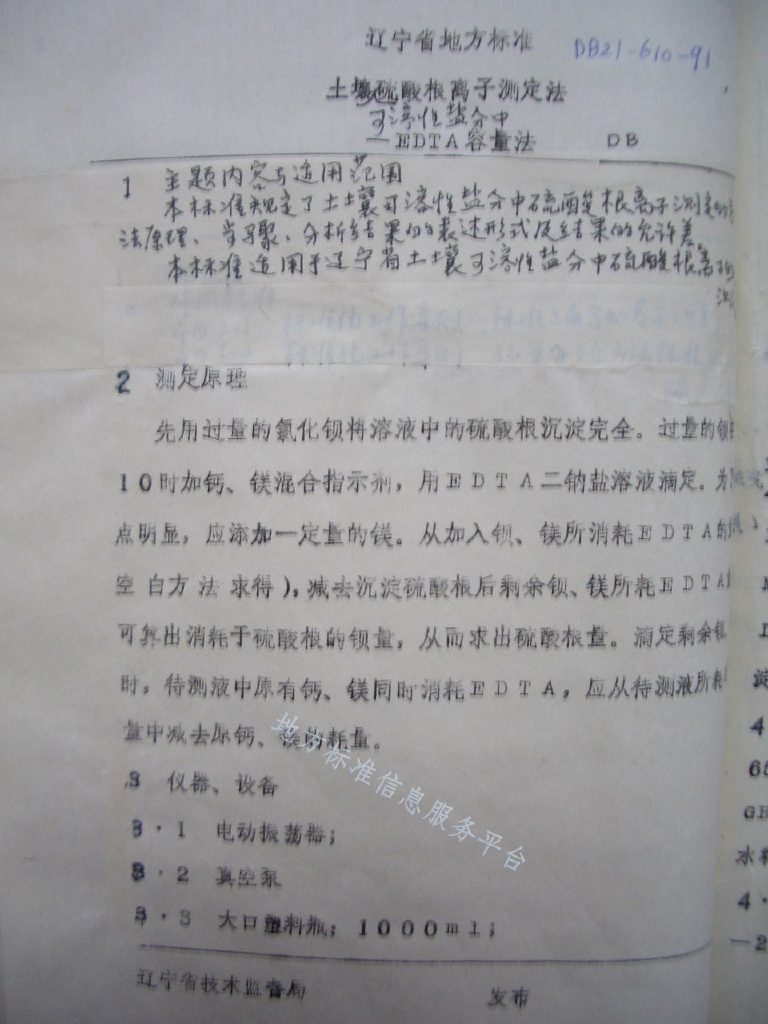 辽宁省地方标准
DB21-610-91
土壤硫酸根离子测定法
可溶性盐分中
—EDTA容量法 DB
1 主题内容与适用范围
本标准规定了土壤可溶性盐分中硫酸根离子测定的
法原理、步骤、分析结果的表述形式及结果的允许差。
本标准适用于辽宁省土壤可溶性盐分中硫酸根离子的
测
2 测定原理
先用过量的氯化钡将溶液中的硫酸根沉淀完全。过量的钡
10时加钙、镁混合指示剂,用EDTA二钠盐溶液滴定。为
点明显,应添加一定量的镁。从加入钡、镁所消耗EDTA的
空白方法求得),减去沉淀硫酸根后剩余钡、镁所耗EDTA
可算出消耗于硫酸根的钡量,从而求出硫酸根量。滴定剩余钡
时,待测液中原有钙、镁同时消耗EDTA,应从待测液所耗
量中减去原钙、镁的耗量。
3 仪器、设备
3·1 电动振荡器;
3·2 真空泵
3·3 大口塑料瓶;1000ml;
辽宁省技术监督局 发布
地方标准信息服务平台
淀
4
65
GB
水
4·
—2